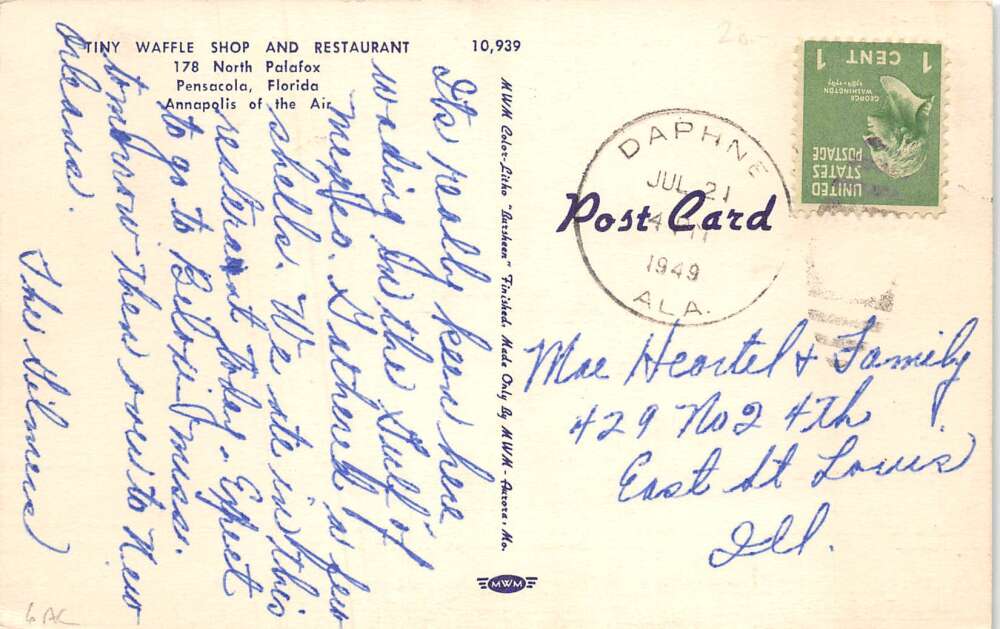 TINY WAFFLE SHOP AND RESTAURANT
178 North Palafox
Pensacola, Florida
Annapolis of the Air
10,939
Its really keen here
wading in the Gulf of
Mexico. Gathered a few
shells. We ate in this
resterant today. Expect
to go to Biloxi - Miss.
tomorrow then over to New
Orleans.
The Gilmers
MWM Color-Litho "Bursheen" Finished. Made Only By MWM-Aurora, Mo.
MWM
Post Card
DAPHNE
JUL 21
4 PM
1949
ALA.
UNITED
STATES
POSTAGE
GEORGE
WASHINGTON
1789-1797
1 CENT 1
Mae Heartel & Family
429 No 24th
East St Louis
Ill.